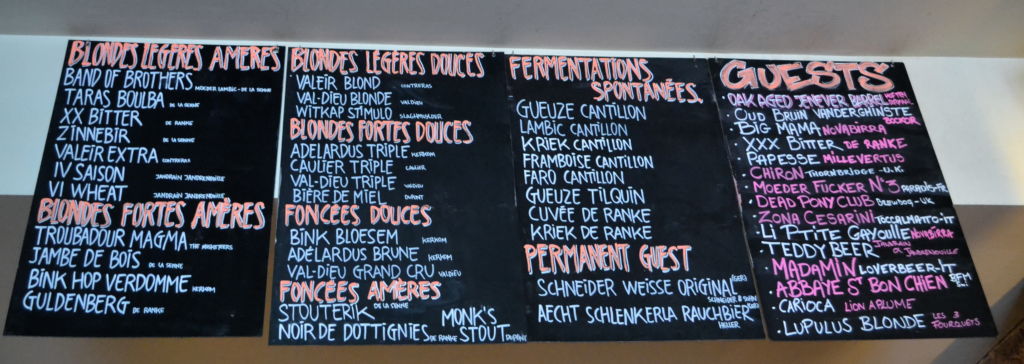 BLONDES LÉGÈRES AMÈRES
BAND OF BROTHERS MOEDER LAMBIC - DE LA SENNE
TARAS BOULBA DE LA SENNE
XX BITTER DE RANKE
ZINNEBIR DE LA SENNE
VALEIR EXTRA CONTRERAS
IV SAISON JANDRAIN JANDRENOUILLE
VI WHEAT JANDRAIN JANDRENOUILLE
BLONDES FORTES AMÈRES
TROUBADOUR MAGMA THE MUSKETEERS
JAMBE DE BOIS DE LA SENNE
BINK HOP VERDOMME KERKOM
GULDENBERG DE RANKE
BLONDES LÉGÈRES DOUCES
VALEIR BLOND CONTRERAS
VAL-DIEU BLONDE VALDIEU
WITKAP STIMULO SLAGHMUYLDER
BLONDES FORTES DOUCES
ADELARDUS TRIPLE KERKOM
CAULIER TRIPLE CAULIER
VAL-DIEU TRIPLE VALDIEU
BIÈRE DE MIEL DUPONT
FONCÉES DOUCES
BINK BLOESEM KERKOM
ADÉLARDUS BRUNE KERKOM
VAL-DIEU GRAND CRU VALDIEU
FONCÉES AMÈRES
STOUTERIK DE LA SENNE
NOIR DE DOTTIGNIES DE RANKE
MONK'S
STOUT DUPONT
FERMENTATIONS
SPONTANÉES.
GUEUZE CANTILLON
LAMBIC CANTILLON
KRIEK CANTILLON
FRAMBOISE CANTILLON
FARO CANTILLON
GUEUZE TILQUIN
CUVÉE DE RANKE
KRIEK DE RANKE
PERMANENT GUEST
SCHNEIDER WEISSE ORIGINAL
AECHT SCHLENKERLA RAUCHBIER
HELLER
GUESTS
OAK AGED JENEVER BARREL
OUD BRUIN VANDERGHINSTE BOCKOR
BIG MAMA NOVABIRRA
XXX BITTER DE RANKE
PAPESSE MILLEVERTUS
CHIRON THORNBRIDGE - U.K.
MOEDER FUCKER N°3 PARADIS-FR
DEAD PONY CLUB BREWDOG - UK
ZONA CESARINI TOCCALMATTO-IT
LI P'TITE GAYOULLE NOVABIRRA
TEDDY BEER JANDRAIN JANDRENOUILLE
MADAMIN LOVERBEER-IT
ABBAYE ST BON CHIEN BFM
CARIOCA LION A PLUME
LUPULUS BLONDE LES 3 FOURQUETS